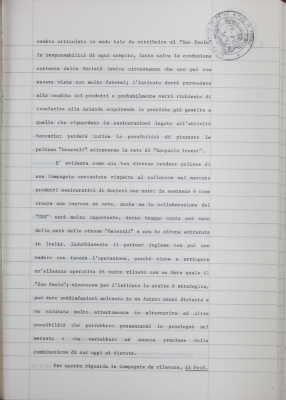 sembra articolato in modo tale da attribuire al "San Paolo"
la responsabilità di ogni compito, fatta salva la conduzione
corrente della Società (unica circostanza che non può con
essere vista con molto favore); l'Istituto dovrà provvedere
alla vendita dei prodotti e probabilmente verrà richiesto di
trasferire alla Azienda acquirenda le polizze già gestite e
quelle che riguardano le assicurazioni legate all'attività
bancaria; perderà infine la possibilità di piazzare le
polizze "Generali" attraverso la rete di "Sanpaolo Invest".
E' evidente come sia ben diverso vendere polizze di
una Compagnia conosciuta rispetto al collocare sul mercato
prodotti assicurativi di Società non note: in sostanza è come
creare una impresa ex novo, anche se la collaborazione del
sarà molto importante, detto Gruppo conta per meno
della metà delle stesse "Generali" e non ha alcuna struttura
in Italia. Indubbiamente il partner inglese non può non
vedere con favore l'operazione, perché viene a stringere
un'alleanza operativa di sicuro rilievo con un Ente quale il
"San Paolo"; viceversa per l'Istituto la scelta è strategica,
può dare soddisfazioni soltanto in un futuro assai distante e
va valutata molto attentamente in alternativa ad altre
possibilità che potrebbero presentarsi in prosieguo sul
mercato e che verrebbero ad essere precluse dalla
combinazione di cui oggi si discute.
Per quanto riguarda la Compagnia da rilevare, il Prof.